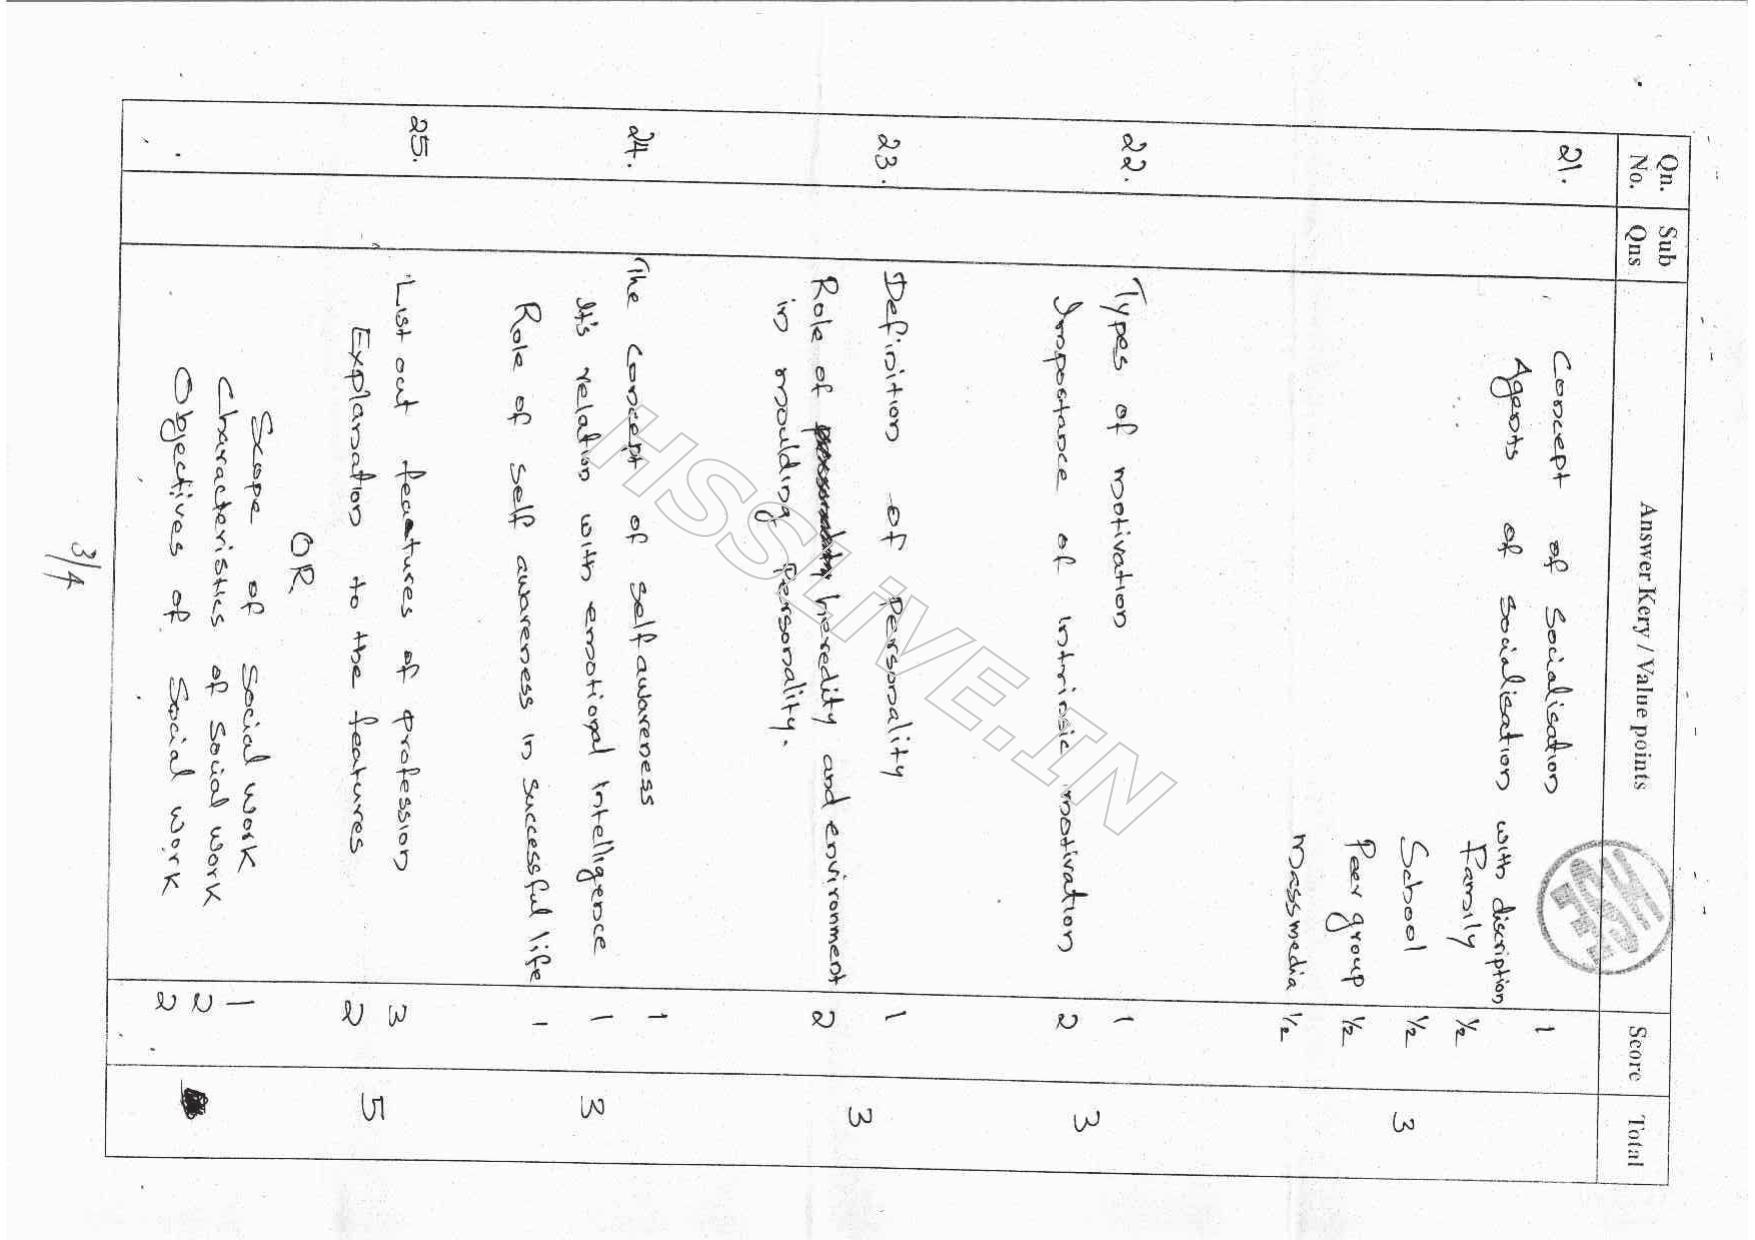 Qn. No. Sub Qns Answer Kery / Value points Score Total
21. Concept of Socialisation 1
Agents of Socialisation with discription
Family ½
School ½ 3
Peer group ½
massmedia ½
22. Types of motivation 1
Importance of Intrinsic motivation 2 3
23. Definition of Personality 1
Role of heredity and environment 2 3
in moulding Personality.
24. The Concept of Self awareness 1
It's relation with emotional Intelligence 1 3
Role of Self awareness in Successful life 1
25. List out features of profession 3
Explanation to the features 2 5
OR
Scope of Social work 1
Characteristics of Social work 2
Objectives of Social work 2
3/4
HSSLiVE.IN
HSE